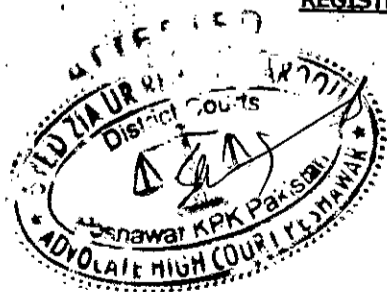 REGIST
ATTESTED
SYED ZIA UR
District Courts
Peshawar KPK Pakistan
★ ADVOCATE HIGH COURT PESHAWAR ★